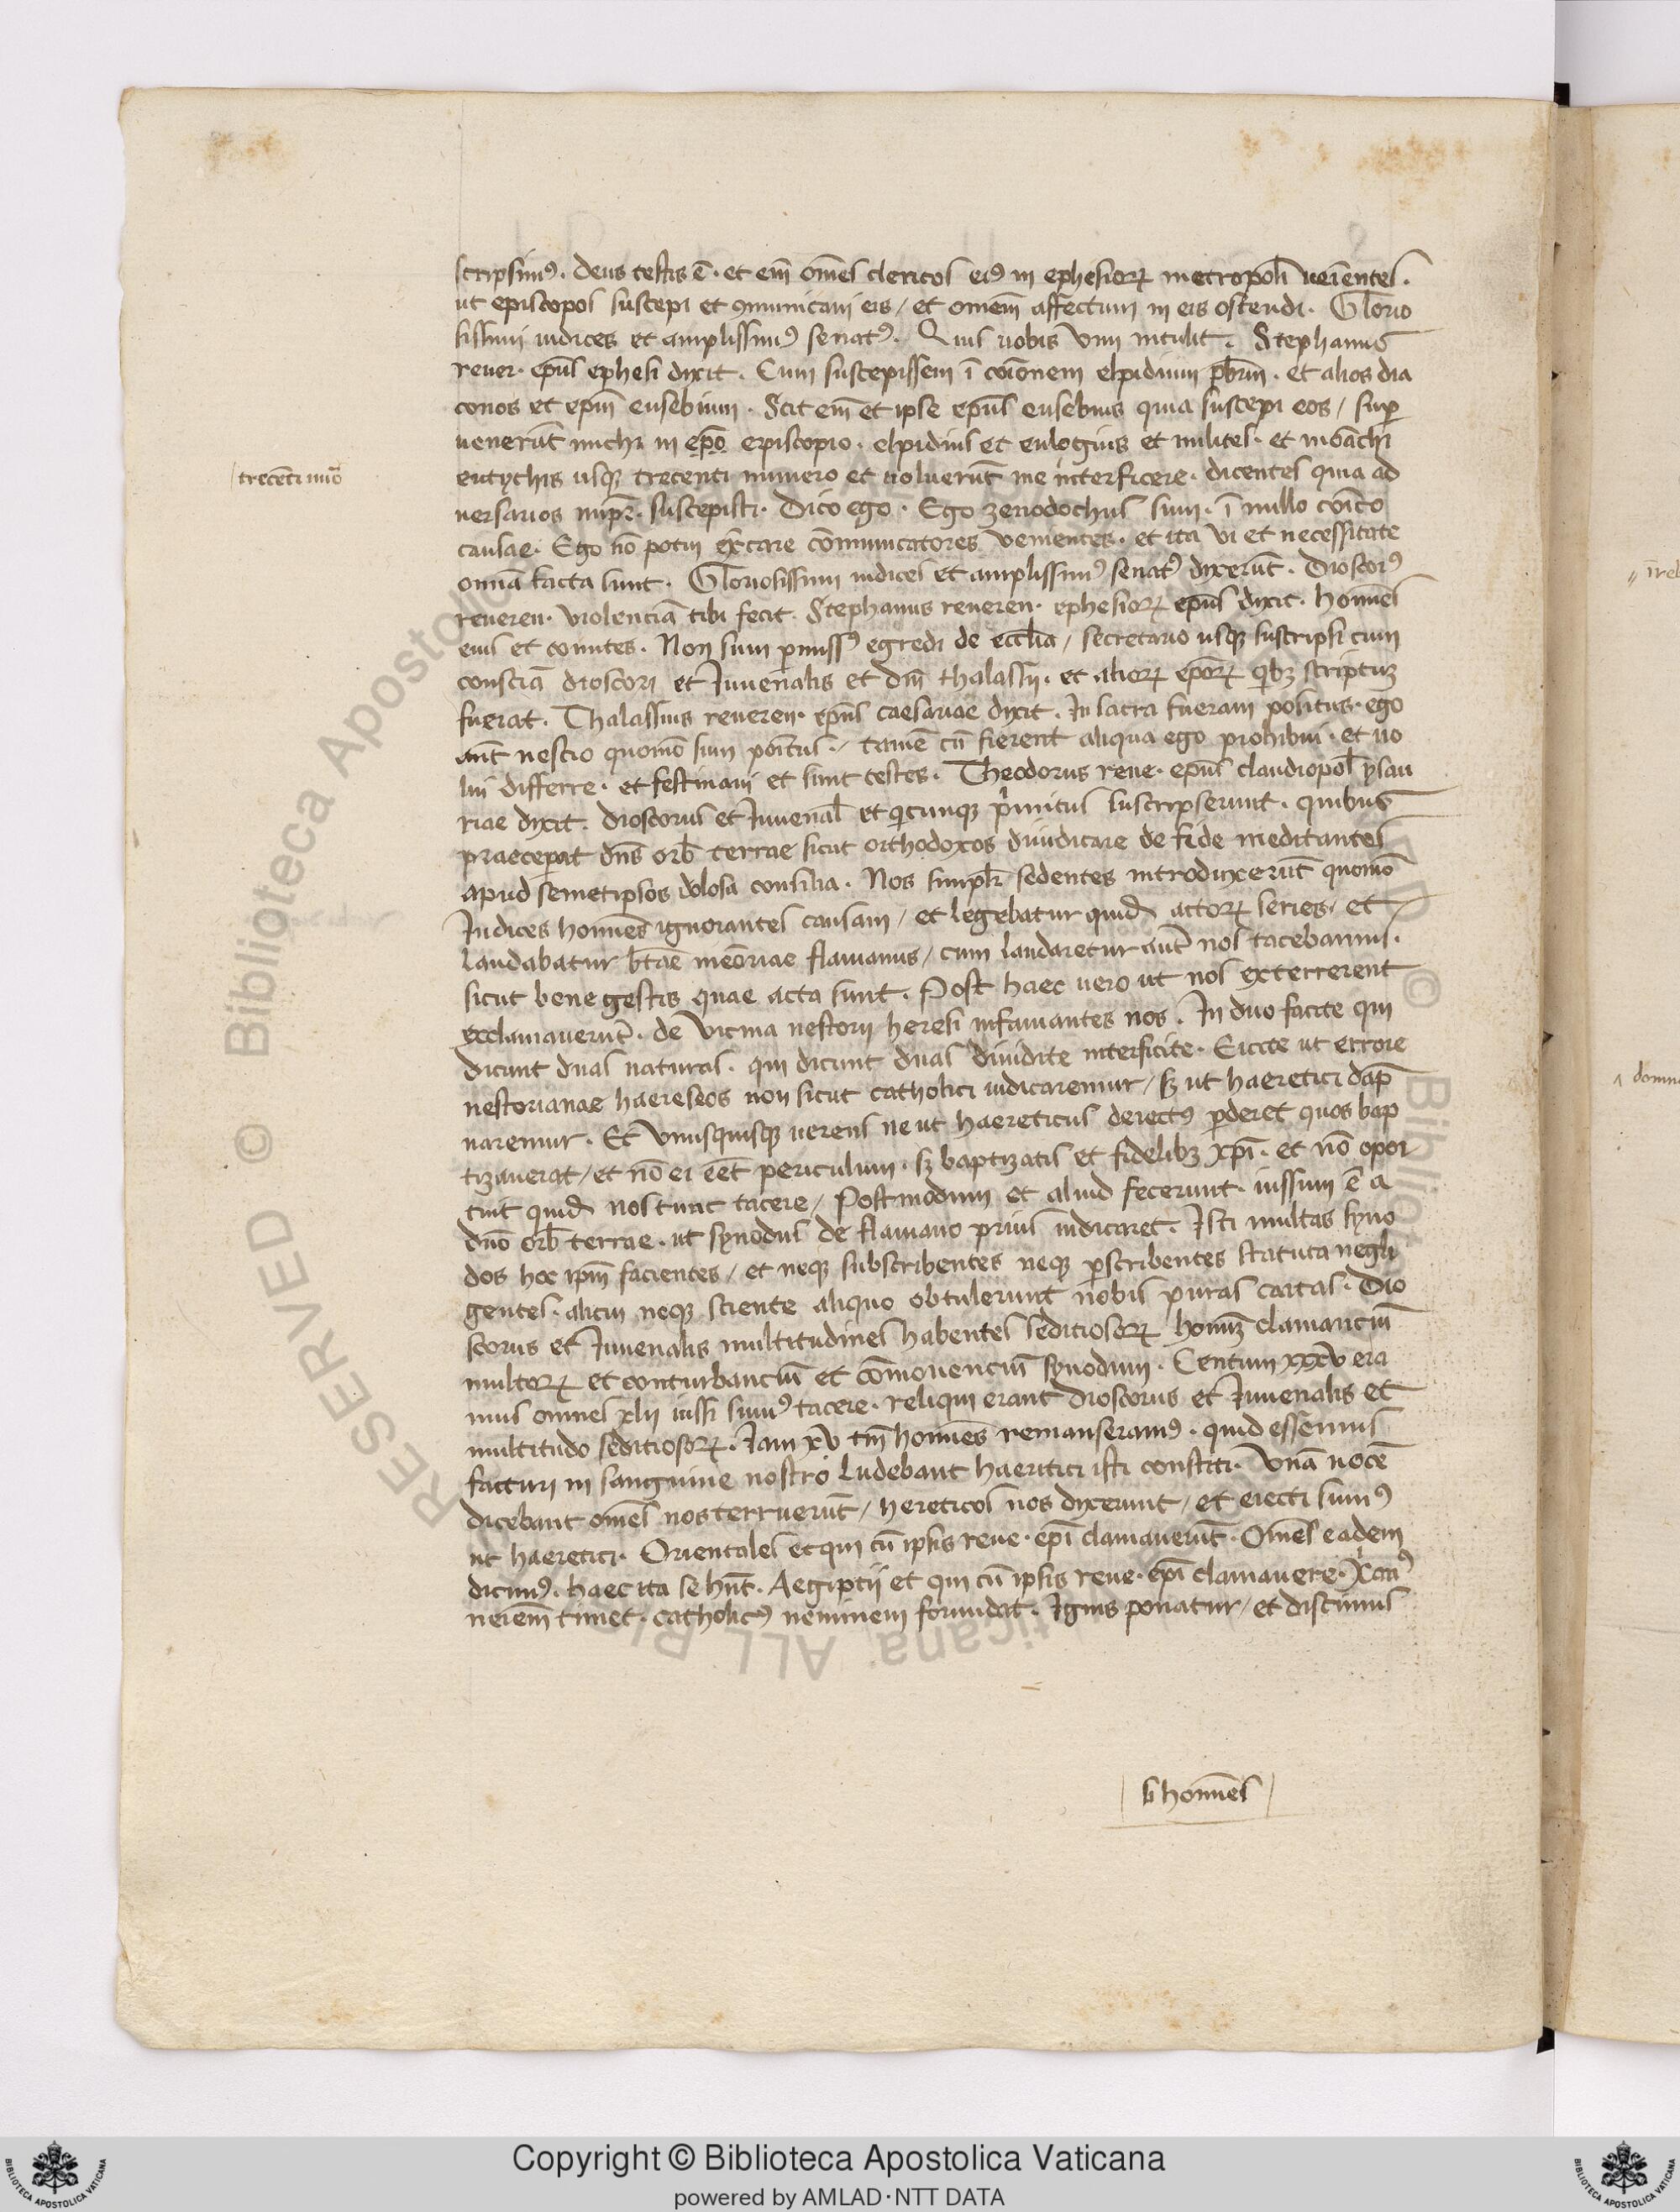 scripsimꝰ. deus testis ē. et em̄ om̄es clericos eiꝰ in ephesioꝝ metropoli uenientes.
ut episcopos suscepi et ꝯmunicaui eis / et omnem affectum in eis ostendi. Glorio
sissimi iudices et amplissimꝰ senatꝰ. Quis uobis vim intulit. Stephanus
reuer. ep̄us ephesi dixit. Cum suscepissem ī cōionem elpidium p̄brm̄. et alios dia
conos et ep̄m eusebium. Scit em̄ et ipse ep̄us eusebius quia suscepi eos / suꝑ
uenerūt michi in ep̄o episcopio. elpidius et eulogius et milites. et monāchi
eutychis usqꝫ trecenti numero et uoluerūt me interficere. dicentes quia ad
trecēti nūo
uersarios impr̄. suscepisti. Dico ego. Ego zenodochus sum. ī nullo cōico
causae. Ego nō potui excare cōmunicatores venientes. et ita vi et necessitate
omnīa facta sunt. Gloriosissimi iudices et amplissimꝰ senatꝰ dixerūt. Dioscorꝰ
reueren. violenciā tibi fecit. Stephanus reueren. ephesioꝝ ep̄us dixit. homines
eius et comites. Non sum ꝑmissꝰ egredi de eccl̄ia / secretario usqꝫ suscripsi cum
consciā dioscori et Iuuenalis et dm̄ thalassii. et alioꝝ ep̄oꝝ qͥbꝫ scriptuꝫ
fuerat. Thalassius reueren. ep̄us caesariae dixit. In sacra fueram positus. ego
aut̄ nescio quomō sum pōitus. / tamē cū fierent aliqua ego prohibui. et uo
lui differre. et festinaui et sunt testes. Theodorus reue. ep̄us claudiopol̄ ysau
riae dixit. dioscorus et Iuuenal̄ et qͥcunqꝫ pͥmitus suscripserunt. quibus
praeceperat dn̄s orb̄ terrae sicut orthodoxos diuidicare de fide meditantes
apud semetipsos dolosa consilia. Nos simplr̄ sedentes introduxerūt quomō
Iudices homines ignorantes causam / et legebatur quidē actoꝝ series / et
laudabatur b̄tae memoriae flauianus / cum laudaretur aut̄ nos tacebamus.
sicut bene gestis quae acta sunt. Post haec uero ut nos exterrerent
exclamauerūt. de vicina nestorii heresi infamantes nos. In duo facite qui
dicunt duas naturas. qui dicunt duas diuidite interficite. Eicite ut errore
nestorianae haereseos non sicut catholici iudicaremur / sꝫ ut haeretici dap̄
naremur. Et vnusquisqꝫ uerens ne ut haereticus deiectꝰ ꝑderet quos bap
tizauerat / et nō ei eēt periculum. sꝫ baptizatis et fidelibꝫ xp̄i. et nō opor
tuit quidē nos tunc tacere / Postmodum et aliud fecerunt. iussum ē a
dn̄o orb̄ terrae. ut synodus de flauiano prius iudicaret. Isti multas syno
dos hoc ip̄m facientes / et neqꝫ subscribentes neqꝫ ꝑscribentes statuta negli
gentes. alicui neqꝫ sciente aliquo obtulerunt nobis puras cartas. Dio
scorus et Iuuenalis multitudines habentes seditiosoꝝ homīꝫ clamanciū
multoꝝ et conturbanciū et cōmouenciū synodum. Centum xxxv era
mus omnes xlii iussi sumꝰ tacere. reliqui erant dioscorus et Iuuenalis et
multitudo seditiosoꝝ. Iam xv tm̄ homines remanseramꝰ. quid essemus
facturi in sanguine nostro ludebant haeritici isti constiti. Vnā uocē
dicebant om̄es nos terruerūt / hereticos nos dixerunt / et eiecti sumꝰ
ut haeretici. Orientales et qui cū ipsis reue. ep̄i clamauerūt. Om̄es eadem
dicimꝰ. haec ita se hn̄t. Aegiptii et qui cū ipsis reue. ep̄i clamauere. Xp̄ianꝰ
neīem timet. catholicꝰ neminem formidat. Ignis ponatur / et discimus
si homines